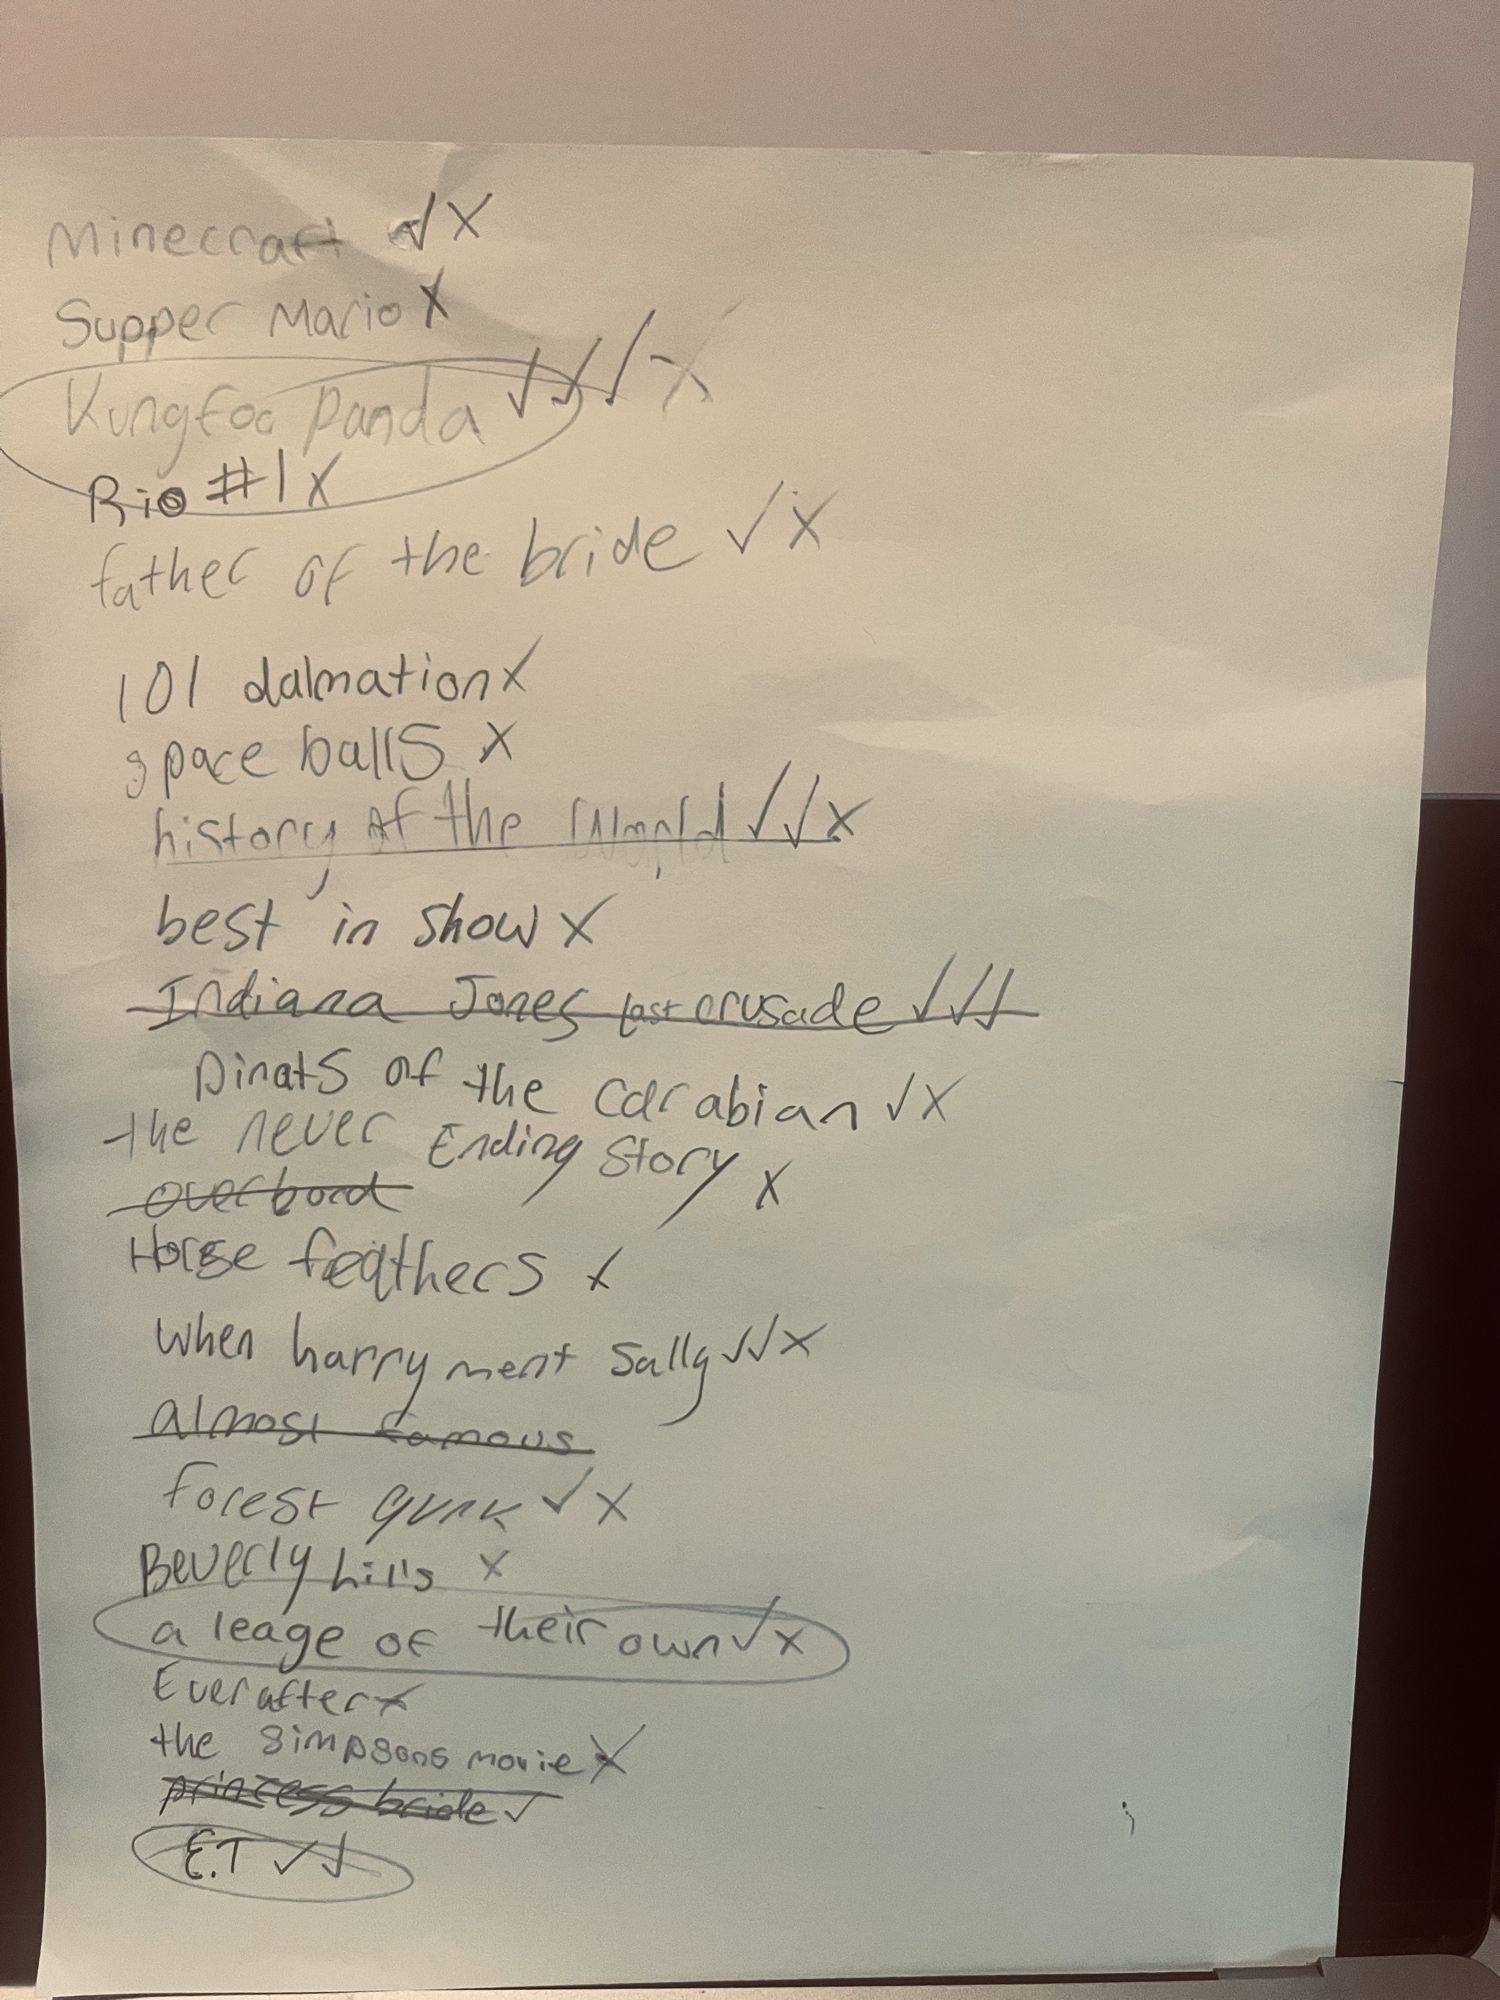 Minecraft √ X
Supper Mario X
Kungfoo Panda √√√ X
Rio #1 X
father of the bride √ X
101 dalmation X
space balls X
history of the World √√ X
best in show X
Indiana Jones last crusade √√√
Pirats of the Carabian √ X
the never Ending Story X
overbord
Horse feathers X
when harry ment Sally √√ X
almost famous
forest gunk √ X
Beverly hills X
a leage of their own √ X
Ever after X
the simpsons movie X
princess bride √
E.T √√